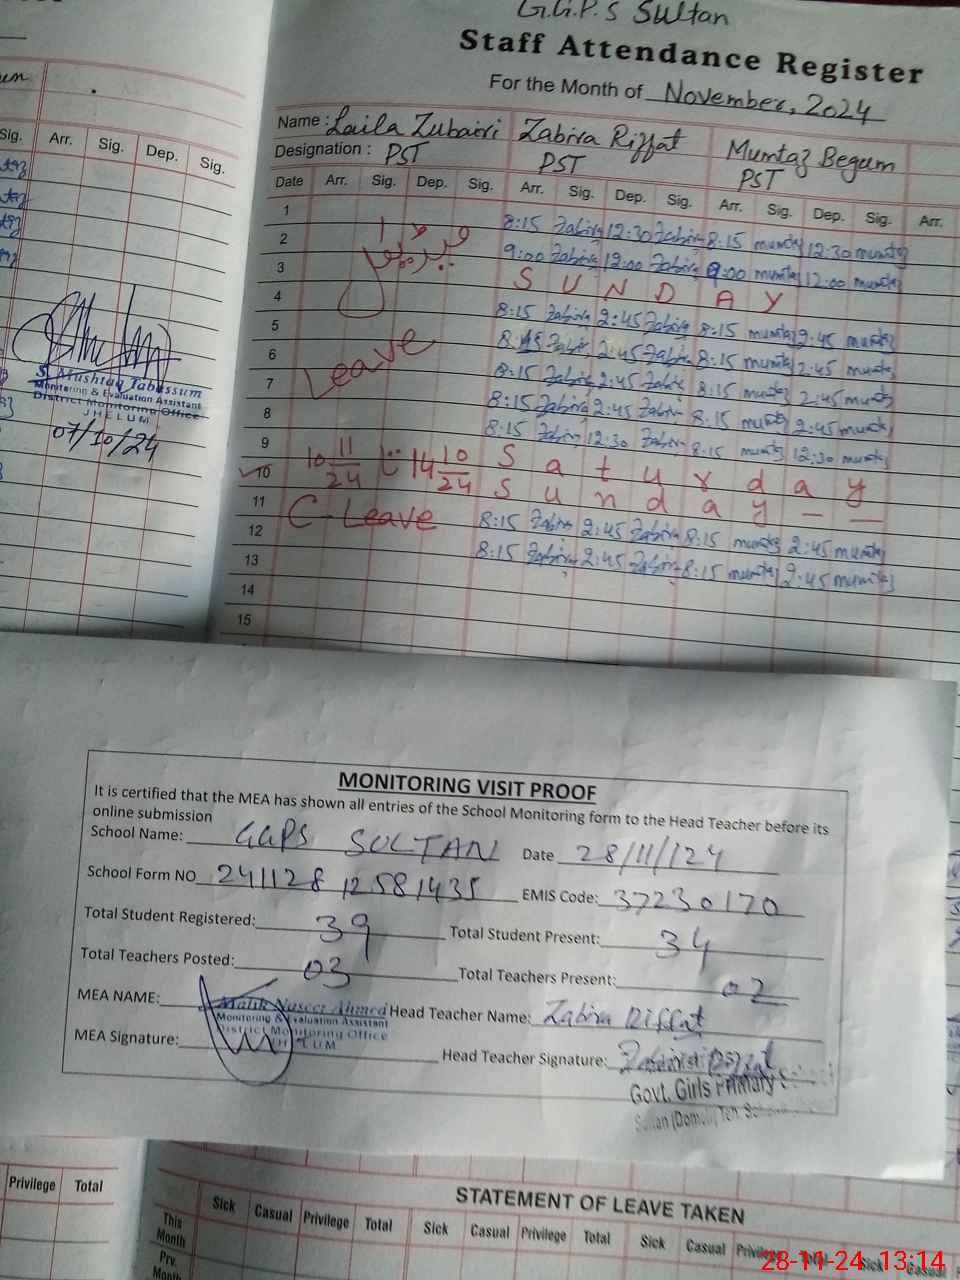 G.G.P.S Sultan
Staff Attendance Register
For the Month of November, 2024
Name : Laila Zubairi Zabira Riffat Mumtaz Begum
Designation : PST PST PST
Sig. Arr. Sig. Dep. Sig.
Date Arr. Sig. Dep. Sig. Arr. Sig. Dep. Sig. Arr. Sig. Dep. Sig. Arr.
1 8:15 Zabira 12:30 Zabira 8:15 mumtaz 12:30 mumtaz
2 9:00 Zabira 12:00 Zabira 9:00 mumtaz 12:00 mumtaz
3 S U N D A Y
4 8:15 Zabira 2:45 Zabira 8:15 mumtaz 2:45 mumtaz
5 8:15 Zabira 2:45 Zabira 8:15 mumtaz 2:45 mumtaz
6 Leave 8:15 Zabira 2:45 Zabira 8:15 mumtaz 2:45 mumtaz
7 8:15 Zabira 2:45 Zabira 8:15 mumtaz 2:45 mumtaz
8 8:15 Zabira 12:30 Zabira 8:15 mumtaz 12:30 mumtaz
9 S a t u r d a y
10 10 11/24 14 10/24 S u n d a y
11 C-Leave 8:15 Zabira 2:45 Zabira 8:15 mumtaz 2:45 mumtaz
12 8:15 Zabira 2:45 Zabira 8:15 mumtaz 2:45 mumtaz
13
14
15
S. Mushtaq Tabassum
Monitoring & Evaluation Assistant
District Monitoring Office
JHELUM
07/10/24
MONITORING VISIT PROOF
It is certified that the MEA has shown all entries of the School Monitoring form to the Head Teacher before its
online submission
School Name: GGPS SULTAN Date 28/11/24
School Form NO 241128 12581435 EMIS Code: 37230170
Total Student Registered: 39 Total Student Present: 34
Total Teachers Posted: 03 Total Teachers Present: 02
MEA NAME: Malik Naseer Ahmed Head Teacher Name: Zabira Riffat
Monitoring & Evaluation Assistant
District Monitoring Office
JHELUM
MEA Signature: Head Teacher Signature:
Govt. Girls Primary
Privilege Total
STATEMENT OF LEAVE TAKEN
Sick Casual Privilege Total Sick Casual Privilege Total Sick Casual Privilege Total Sick Casual
This Month
Prv. Month
28-11-24 13:14